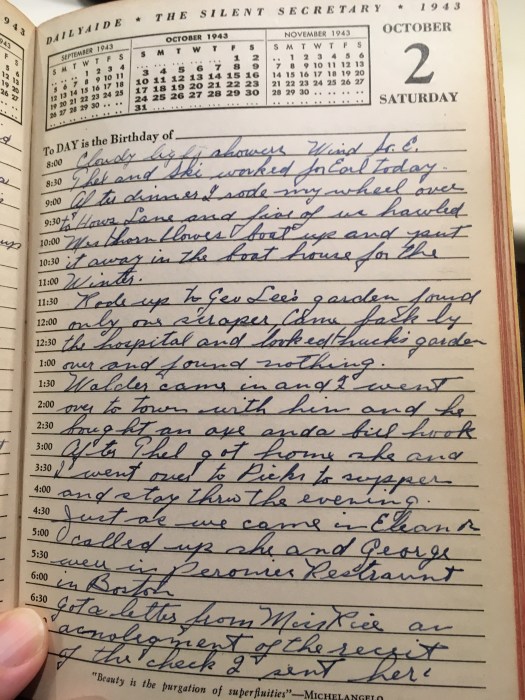 943
DAILYAIDE * THE SILENT SECRETARY * 1943
SEPTEMBER 1943
S M T W T F S
1 2 3 4
5 6 7 8 9 10 11
12 13 14 15 16 17 18
19 20 21 22 23 24 25
26 27 28 29 30
OCTOBER 1943
S M T W T F S
1 2
3 4 5 6 7 8 9
10 11 12 13 14 15 16
17 18 19 20 21 22 23
24 25 26 27 28 29 30
31
NOVEMBER 1943
S M T W T F S
1 2 3 4 5 6
7 8 9 10 11 12 13
14 15 16 17 18 19 20
21 22 23 24 25 26 27
28 29 30
OCTOBER
2
SATURDAY
To DAY is the Birthday of
8:00 Cloudy light showers Wind So. E.
8:30 Thel and Ski worked for Earl today.
9:00 After dinner I rode my wheel over
9:30 to Hows Lane and five of us hawled
10:00 Wes boat up and put
10:30 it away in the boat house for the
11:00 Winter.
11:30 Rode up to Geo Lee's garden found
12:00 only one scraper Came back by
12:30 the hospital and looked garden
1:00 over and found nothing.
1:30 came in and I went
2:00 over to town with him and he
2:30 bought an axe and a bill hook
3:00 After Thel got home she and
3:30 I went over to to supper
4:00 and stay thru the evening.
4:30 Just as we came in Eleanor
5:00 called up she and George
5:30 were in Restraunt
6:00 in Boston
6:30 Got a letter from Miss Rice an
acnolegment of the receit
of the check I sent her.
"Beauty is the purgation of superfluities"—MICHELANGELO